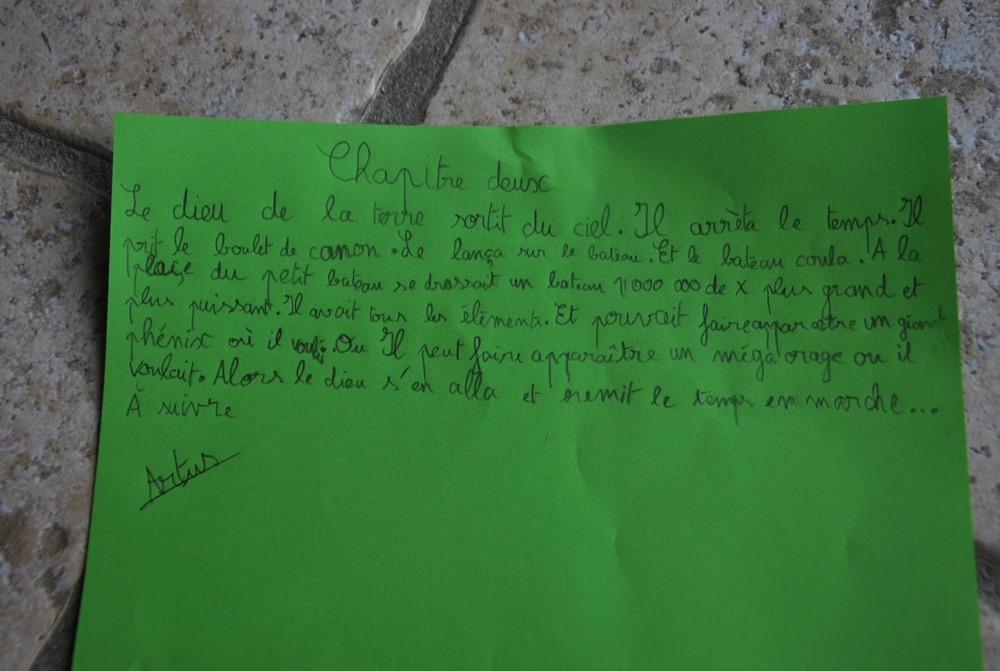 Chapitre deux
Le dieu de la terre sortit du ciel. Il arrèta le temps. Il
prit le boulet de canon. Le lança sur le bateau. Et le bateau coula. A la
plaçe du petit bateau se drossait un bateau 1000 000 de X plus grand et
plus puissant. Il avait tous les éléments. Et pouvait faire apparaetre un giant
phénix où il voulé. Ou Il peut faire apparaître un méga orage ou il
voulait. Alors le dieu s'en alla et remit le temps en marche...
À suivre
Artus